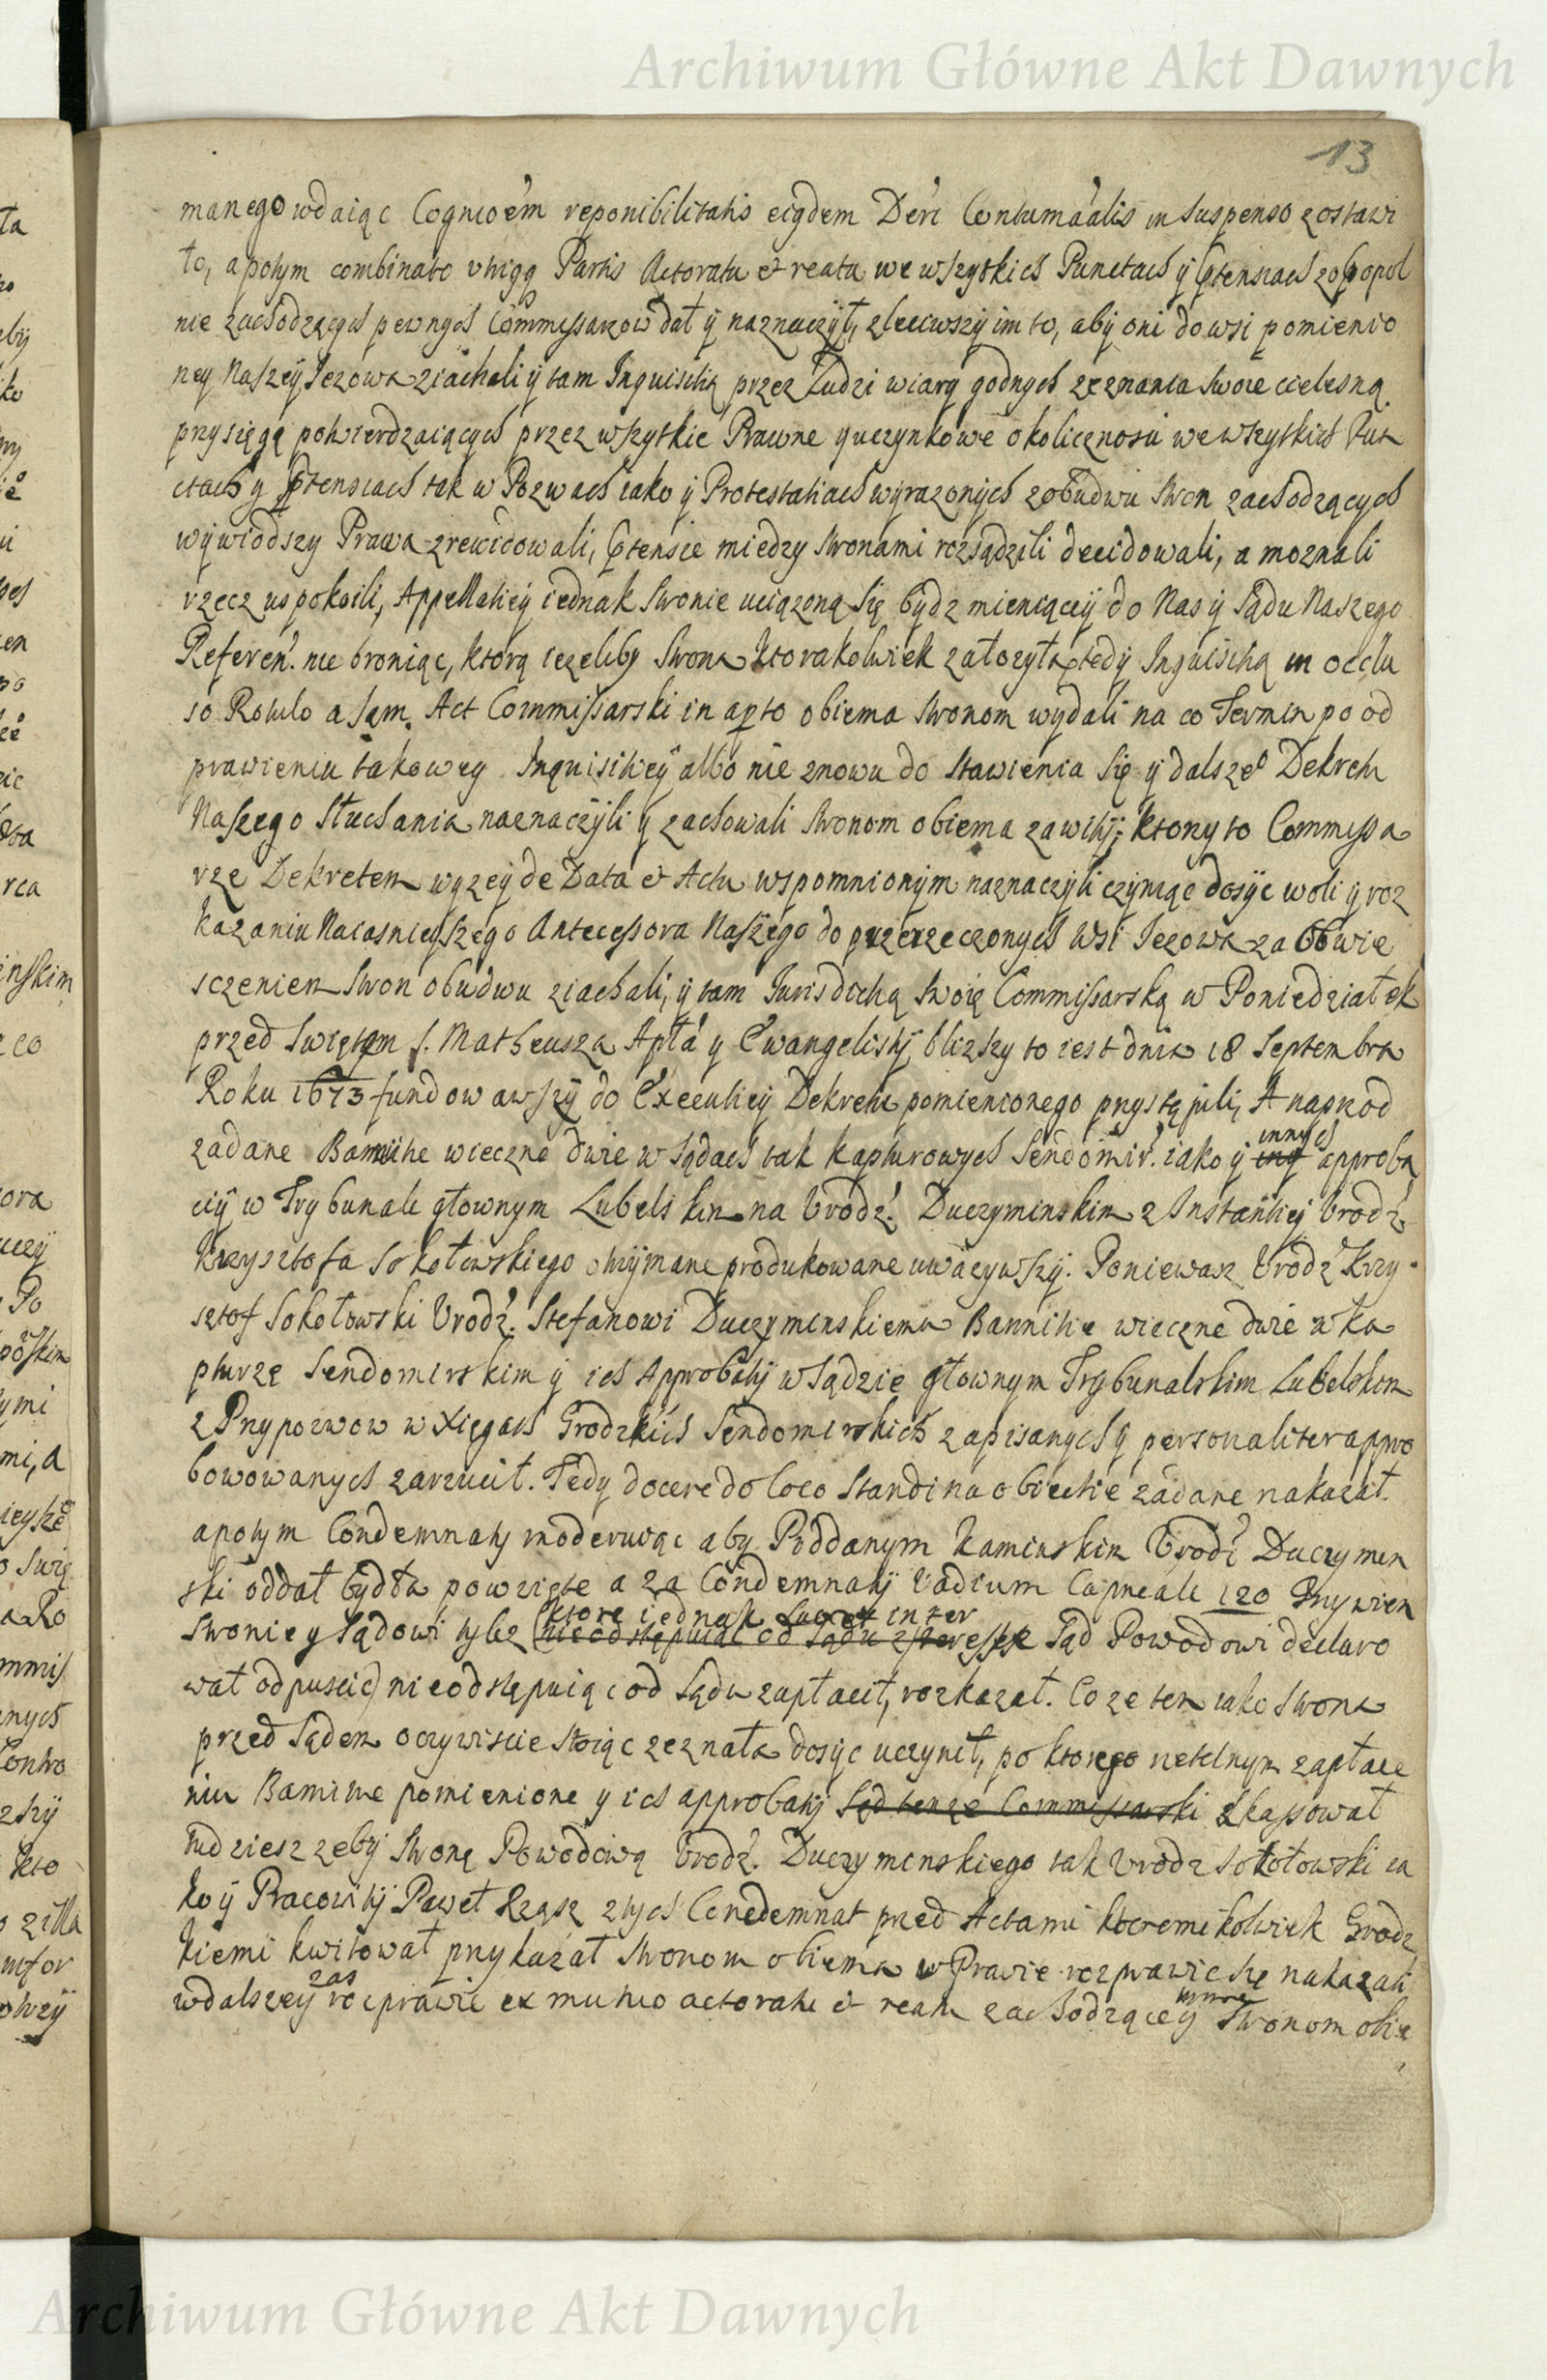 Archiwum Główne Akt Dawnych
13
manego wdaiąc Cognio͠em reponibilitatis eiądem Decr͠i Contuma͠alis in suspenso zostawi
ło, a potym combinato utrigą Partis Actoratu et reatu we wszytkich Punctach ÿ p̃tensiach zobopol
nie zachodzących pewnych Commissarzow dał ÿ naznaczÿł, zleciwszÿ im to, abÿ oni do wsi pomienio
neÿ Naszeÿ Jezowa ziachali ÿ tam Inquisitią przez Ludzi wiarÿ godnych zeznania swoie cielesną
przysięgą potwierdzaiących przez wszytkie Prawne y uczynkowe okolicznosci we wszytkich Pun
ctach y p̃tensiach tak w Pozwach iako ÿ Protestatiach wyrazonÿch z obudwu stron zachodzących
wÿwiodszy Prawa zrewidowali, p̃tensie miedzy stronami rozsądzili decidowali, a moznali
rzecz uspokoili, Appellatieÿ iednak stronie uciązoną się bydz mieniąceÿ do Nas ÿ Sądu Naszego
Referen͠. nie broniąc, ktorą iezeliby strona ktorakolwiek załozyła, tedÿ Inquisitią in occlu
so Rotulo a sam Act Commissarski in ap̃to obiema stronom wydali na co Termin po od
prawieniu takowey Inquisitieÿ albo nie znowu do stawienia się ÿ dalszeº Dekretu
Naszego słuchania naznaczÿli ÿ zachowali stronom obiema zawitÿ; ktorzy to Commissa
rze Dekretem wyzeÿ de Data et Actu wspomnionÿm naznaczÿli czÿniąc dosÿc woli ÿ roz
kazaniu Naiasnieyszego Antecessora Naszego do przerzeczonych wsi Jezowa za obwie
sczeniem stron obudwu ziachali, ÿ tam Jurisdictią swoię Commissarską w Poniedziałek
przed Swiętem S. Matheusza Apl͠a y Ewangelistÿ blizszy to iest dnia 18 Septembra
Roku 1673 fundowawszÿ do Executieÿ Dekretu pomienionego przystąpili, A naprzod
zadane Bannitie wieczne dwie w Sądach tak kapturowych Sendomir͠. iako ÿ inych innych approba
ciÿ w Trybunale głownym Lubelskim na Urodz͠. Duczyminskim z Instantieÿ Urodz͠
Krzysztofa Sokołowskiego otrzÿmane produkowane uwazywszÿ. Poniewasz Urodz͠ Krzy
sztof Sokołowski Urodz͠. Stefanowi Duczyminskiemu Bannitie wieczne dwie w ka
pturze Sendomirskim ÿ ich Approbatÿ w Sądzie głownym Trybunalskim Lubelskim
z Przypozwow w Xięgach Grodzkich Sendomirskich zapisanych y personaliter appro
bowowanych zarzucił. Tedy docere do loco standi na obiectie zadane nakazał.
a potym Condemnaty moderuiąc aby Poddanym Kaminskim Urodz͠ Duczymin
ski oddał bydła powzięte a za Condemnatÿ Vadium Capneale 120 Grzywien
stronie y Sądowi tylez (nieodstępuiąc od Sądu ktore iednak sucet interesse Sąd Powodowi declaro
wał odpuscic) nieodstępuiąc od Sądu zapłacił, rozkazał. Co ze ten iako strona
przed Sądem oczywiscie stoiąc zeznała dosÿc uczynił, po ktorego retelnym zapłace
niu Bannitie pomienione y ich approbatÿ Sąd tenze Commissarski skassował
tudziesz zebÿ stronę Powodową Urodz͠. Duczyminskiego tak Urodz Sokołowski ia
ko ÿ Pracowitÿ Paweł Rząsz z tych Condemnat przed Actami ktoremikolwiek Grodz
kiemi kwitował przykazał stronom obiema w Prawie rozprawic się nakazali
w dalszeÿ zas rosprawie ex mutuo actoratu et reatu zachodząceÿ stronom obie
Archiwum Główne Akt Dawnych